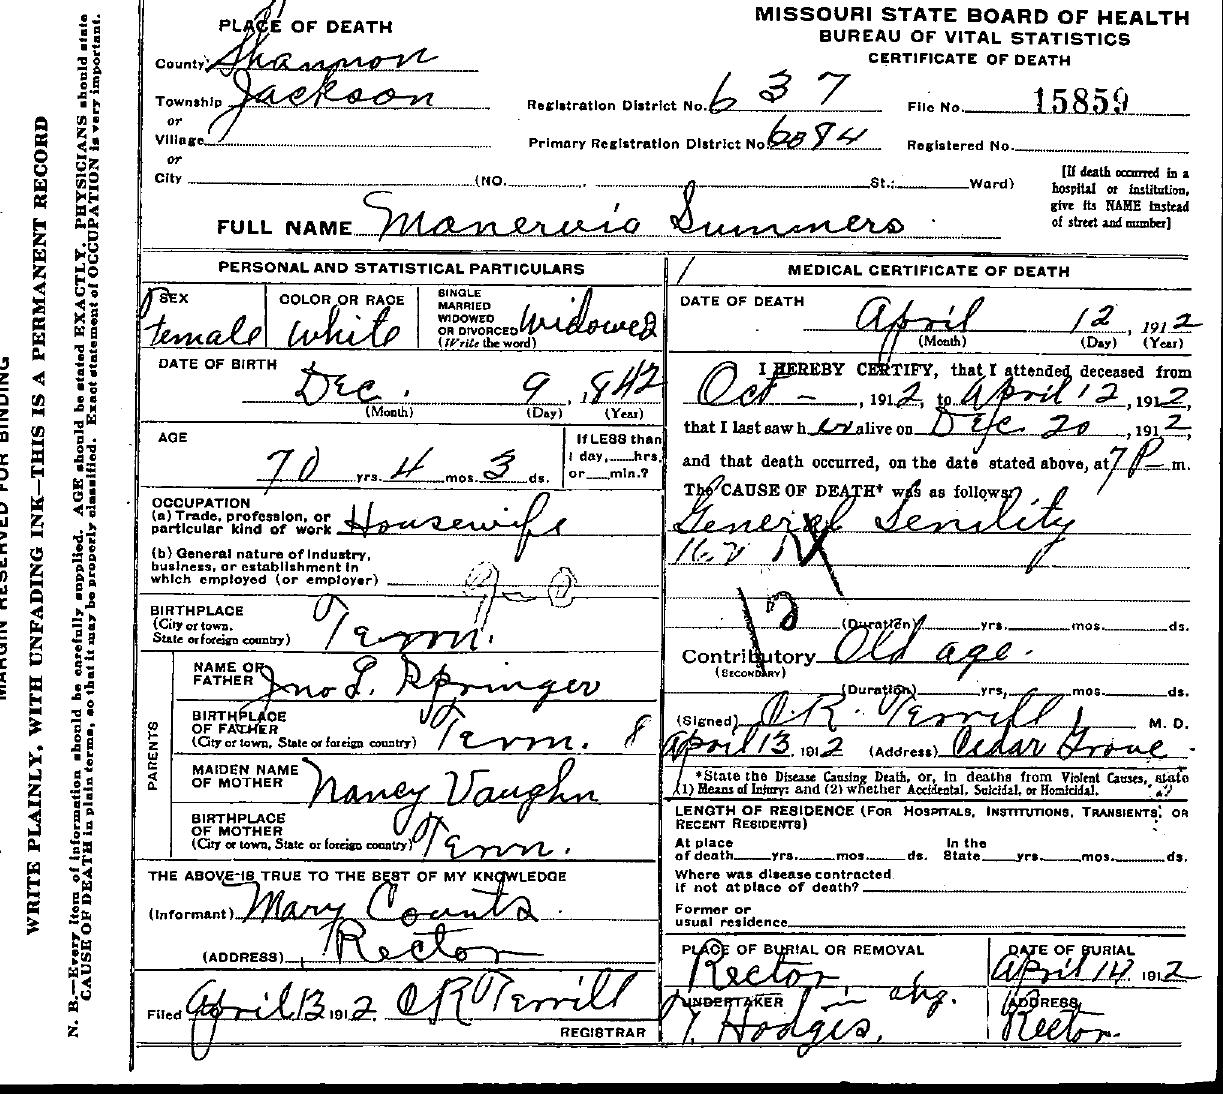 MARGIN RESERVED FOR BINDING
WRITE PLAINLY, WITH UNFADING INK—THIS IS A PERMANENT RECORD
N. B.—Every item of information should be carefully supplied. AGE should be stated EXACTLY. PHYSICIANS should state
CAUSE OF DEATH in plain terms, so that it may be properly classified. Exact statement of OCCUPATION is very important.
MISSOURI STATE BOARD OF HEALTH
BUREAU OF VITAL STATISTICS
CERTIFICATE OF DEATH
PLACE OF DEATH
County Shannon
Township Jackson
or
Village
or
City (NO. St.; Ward)
Registration District No. 637
File No. 15859
Primary Registration District No. 6084
Registered No.
[If death occurred in a
hospital or institution,
give its NAME instead
of street and number]
FULL NAME Manervia Summers
PERSONAL AND STATISTICAL PARTICULARS
SEX
female
COLOR OR RACE
White
SINGLE
MARRIED
WIDOWED
OR DIVORCED
(Write the word)
Widowed
DATE OF BIRTH
Dec. 9, 1842
(Month) (Day) (Year)
AGE
70 yrs. 4 mos. 3 ds.
If LESS than
1 day, hrs.
or min.?
OCCUPATION
(a) Trade, profession, or
particular kind of work Housewife
(b) General nature of industry,
business, or establishment in
which employed (or employer)
9-0
BIRTHPLACE
(City or town,
State or foreign country) Tenn.
PARENTS
NAME OF
FATHER Jno L. Springer
BIRTHPLACE
OF FATHER
(City or town, State or foreign country) Tenn. 8
MAIDEN NAME
OF MOTHER Nancy Vaughn
BIRTHPLACE
OF MOTHER
(City or town, State or foreign country) Tenn.
THE ABOVE IS TRUE TO THE BEST OF MY KNOWLEDGE
(Informant) Mary Counts
(ADDRESS) Rector
Filed April 13 1912 O R Terrill
REGISTRAR
MEDICAL CERTIFICATE OF DEATH
DATE OF DEATH
April 12, 1912
(Month) (Day) (Year)
I HEREBY CERTIFY, that I attended deceased from
Oct — , 1912, to April 12, 1912,
that I last saw her alive on Dec 20, 1912,
and that death occurred, on the date stated above, at 7 P m.
The CAUSE OF DEATH* was as follows:
General Senility
(Duration) yrs. mos. ds.
Contributory Old age.
(SECONDARY)
(Duration) yrs. mos. ds.
(Signed) O. R. Terrill M. D.
April 13 1912 (Address) Cedar Grove
*State the Disease Causing Death, or, in deaths from Violent Causes, state
(1) Means of Injury; and (2) whether Accidental, Suicidal, or Homicidal.
LENGTH OF RESIDENCE (FOR HOSPITALS, INSTITUTIONS, TRANSIENTS, OR
RECENT RESIDENTS)
At place
of death yrs. mos. ds.
In the
State yrs. mos. ds.
Where was disease contracted
if not at place of death?
Former or
usual residence
PLACE OF BURIAL OR REMOVAL
Rector
DATE OF BURIAL
April 14 1912
UNDERTAKER in chg.
T. Hodges.
ADDRESS
Rector